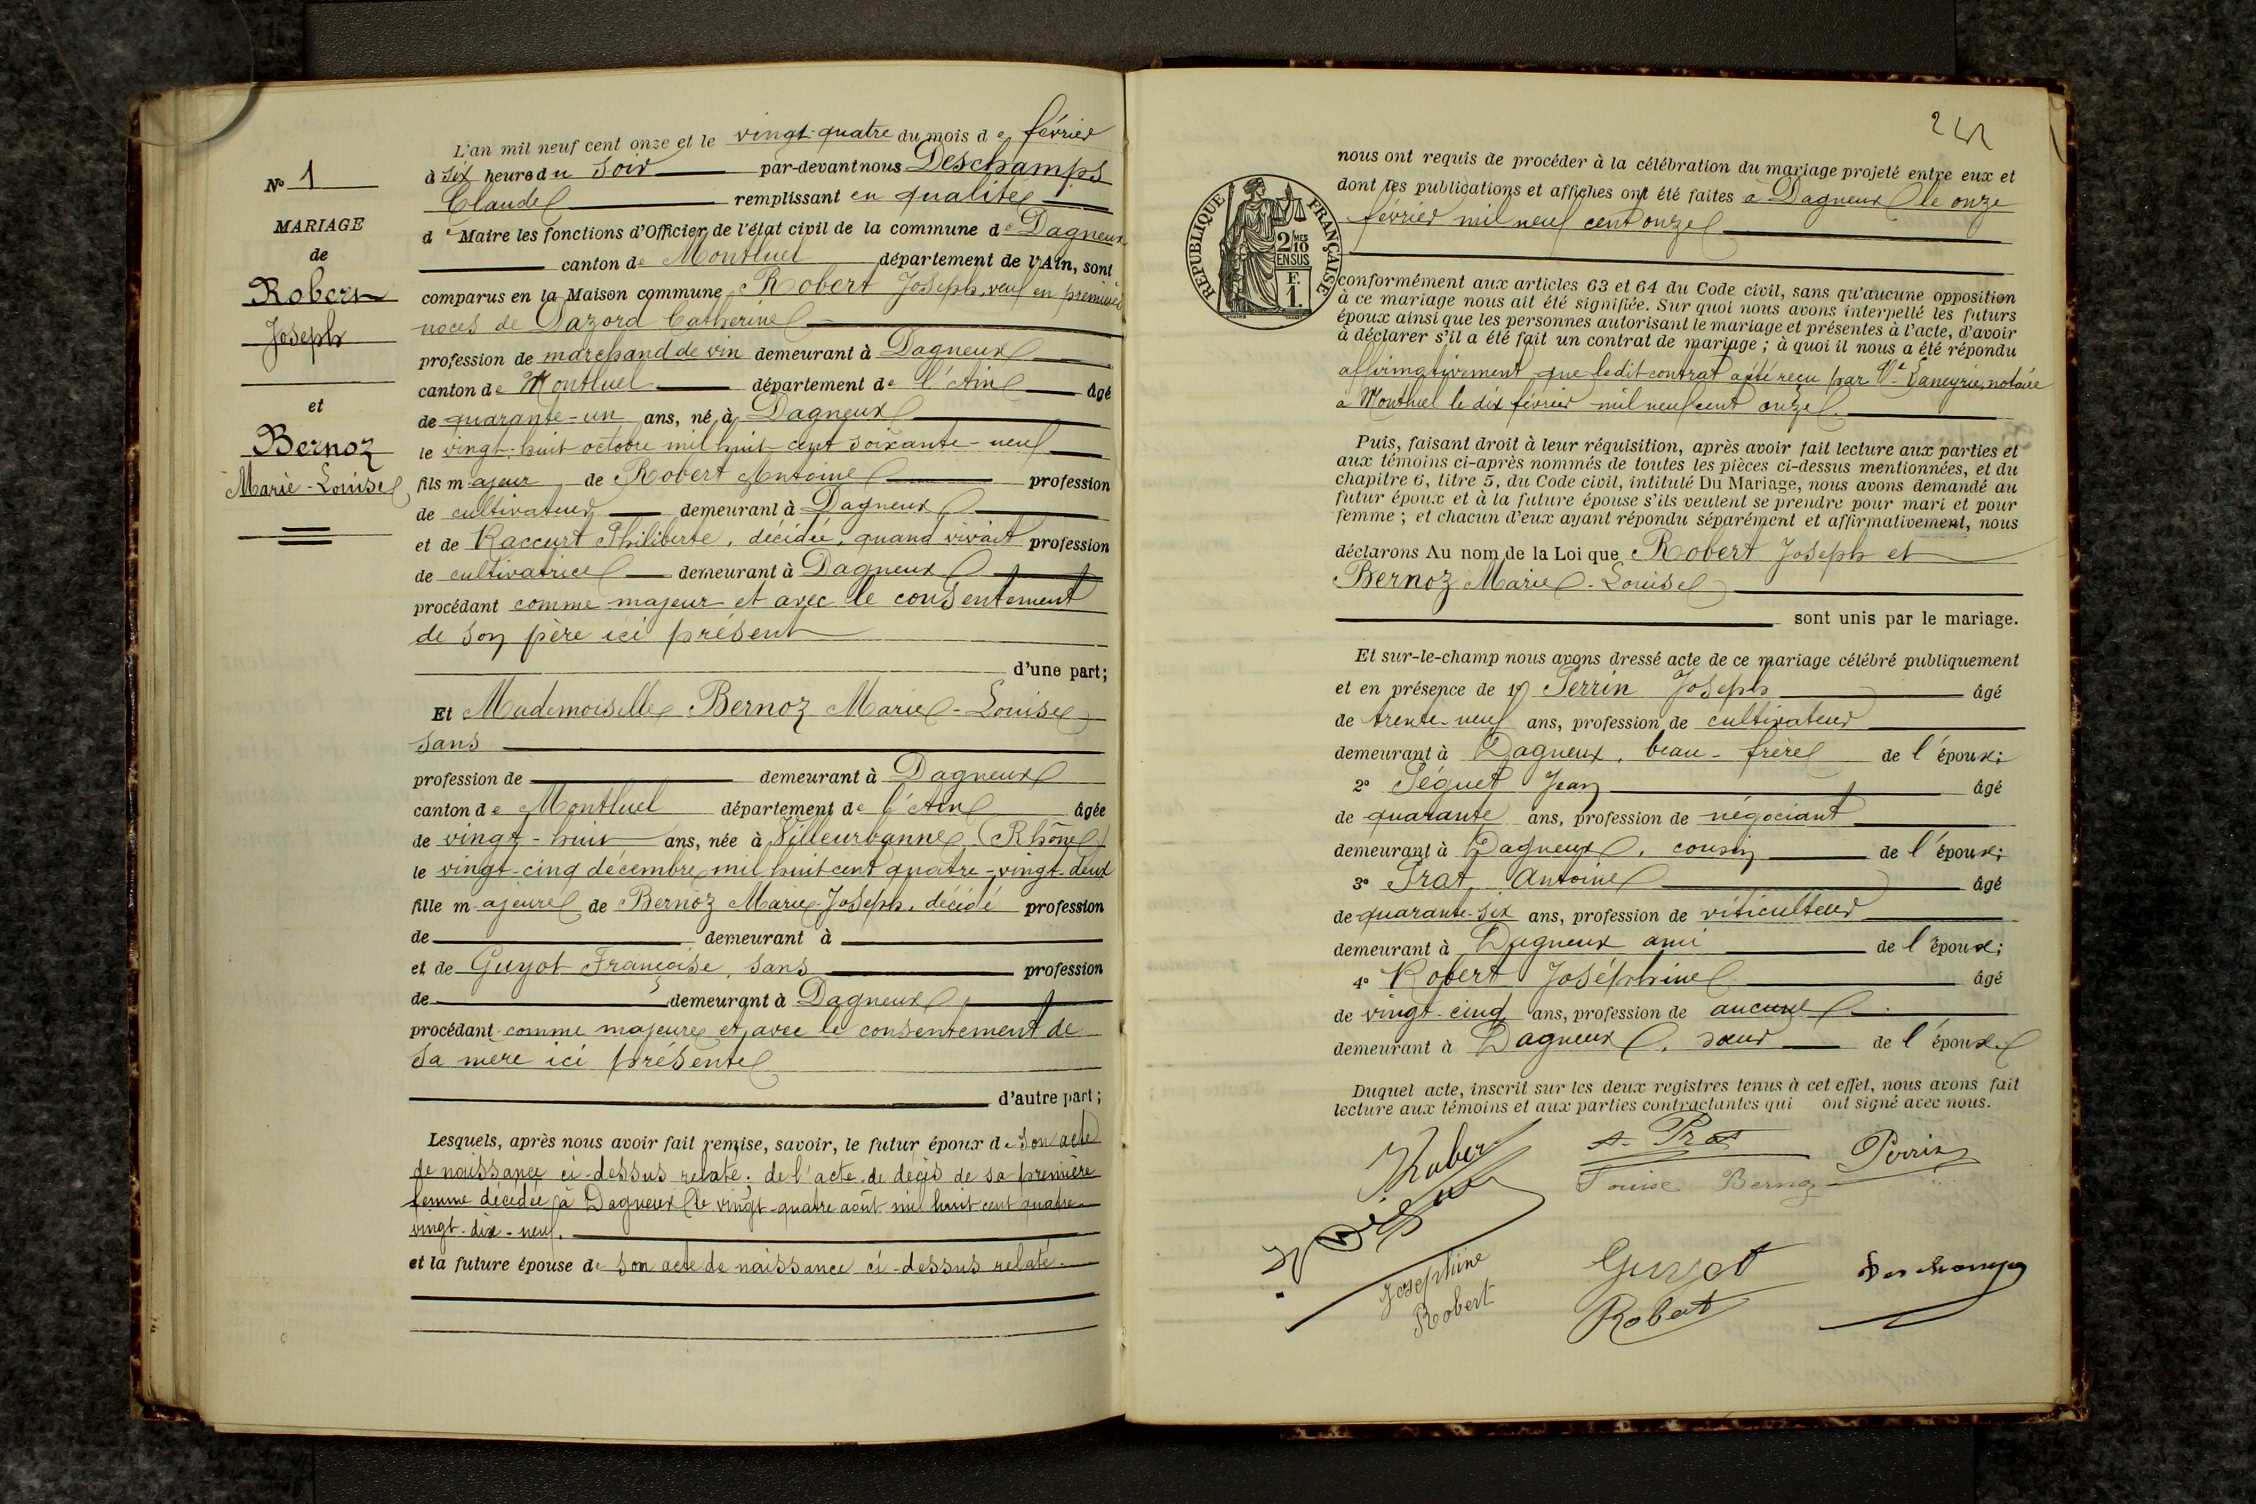 N° 1
MARIAGE
de
Robert
Joseph
et
Bernoz
Marie-Louise
L'an mil neuf cent onze et le vingt-quatre du mois de février
à six heure du soir par-devant nous Deschamps
Claude remplissant en qualité
de Maire les fonctions d'Officier de l'état civil de la commune de Dagneux
canton de Montluel département de l'Ain, sont
comparus en la Maison commune Robert Joseph, veuf en premières
noces de Dazord Catherine
profession de marchand de vin demeurant à Dagneux
canton de Montluel département de l'Ain âgé
de quarante-un ans, né à Dagneux
le vingt-huit octobre mil huit cent soixante-neuf
fils majeur de Robert Antoine profession
de cultivateur demeurant à Dagneux
et de Raccurt Philiberte, décidée, quand vivait profession
de cultivatrice demeurant à Dagneux
procédant comme majeur et avec le consentement
de son père ici présent
d'une part;
Et Mademoiselle Bernoz Marie-Louise
sans
profession de demeurant à Dagneux
canton de Montluel département de l'Ain âgée
de vingt-huit ans, née à Villeurbanne (Rhône)
le vingt-cinq décembre mil huit cent quatre-vingt-deux
fille majeure de Bernoz Marie-Joseph, décidé profession
de demeurant à
et de Guyot Françoise, sans profession
de demeurant à Dagneux
procédant comme majeure et avec le consentement de
sa mère ici présente
d'autre part;
Lesquels, après nous avoir fait remise, savoir, le futur époux de son acte
de naissance ci-dessus relaté; de l'acte de décès de sa première
femme décédée à Dagneux le vingt-quatre août mil huit cent quatre-
vingt-dix-neuf.
et la future épouse de son acte de naissance ci-dessus relaté.
RÉPUBLIQUE FRANÇAISE
2/10 MES
EN SUS
F.
1.
nous ont requis de procéder à la célébration du mariage projeté entre eux et
dont les publications et affiches ont été faites à Dagneux le onze
février mil neuf cent onze
conformément aux articles 63 et 64 du Code civil, sans qu'aucune opposition
à ce mariage nous ait été signifiée. Sur quoi nous avons interpellé les futurs
époux ainsi que les personnes autorisant le mariage et présentes à l'acte, d'avoir
à déclarer s'il a été fait un contrat de mariage; à quoi il nous a été répondu
affirmativement que ledit contrat a été reçu par Me Laneyrie, notaire
à Montluel le dix février mil neuf cent onze.
Puis, faisant droit à leur réquisition, après avoir fait lecture aux parties et
aux témoins ci-après nommés de toutes les pièces ci-dessus mentionnées, et du
chapitre 6, titre 5, du Code civil, intitulé Du Mariage, nous avons demandé au
futur époux et à la future épouse s'ils veulent se prendre pour mari et pour
femme; et chacun d'eux ayant répondu séparément et affirmativement, nous
déclarons Au nom de la Loi que Robert Joseph et
Bernoz Marie-Louise
sont unis par le mariage.
Et sur-le-champ nous avons dressé acte de ce mariage célébré publiquement
et en présence de 1° Perrin Joseph âgé
de trente-neuf ans, profession de cultivateur
demeurant à Dagneux, beau-frère de l'époux;
2° Séguet Jean âgé
de quarante ans, profession de négociant
demeurant à Dagneux, cousin de l'époux;
3° Prat, Antoine âgé
de quarante-six ans, profession de viticulteur
demeurant à Dagneux ami de l'époux;
4° Robert Joséphine âgé
de vingt-cinq ans, profession de aucune
demeurant à Dagneux, sœur de l'époux
Duquel acte, inscrit sur les deux registres tenus à cet effet, nous avons fait
lecture aux témoins et aux parties contractantes qui ont signé avec nous.
A. Prat
Perrin
Louise Bernoz
Josephine
Robert
Guyot
Robert
Deschamps